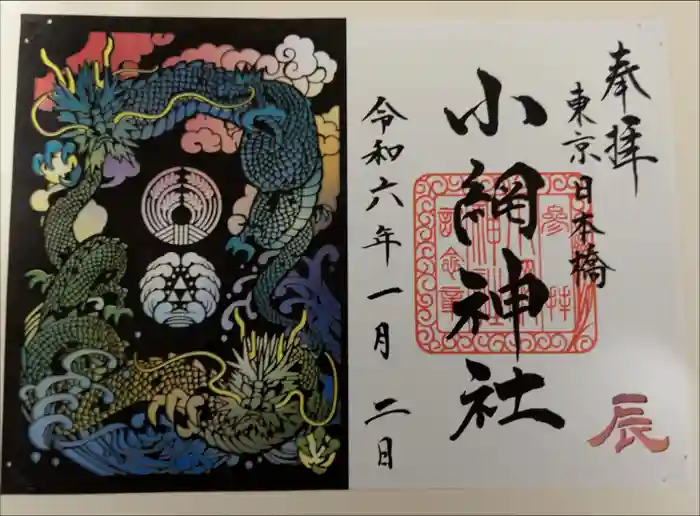 奉拝
東京日本橋
小網神社
令和六年一月二日
辰